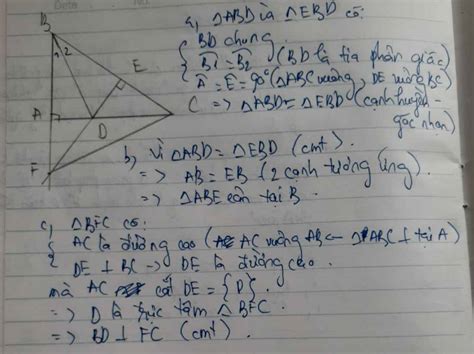 a, ΔABD và ΔEBD có:
BD chung
B̂1 = B̂2 (BD là tia phân giác)
Â = Ê = 90° (ΔABC vuông, DE vuông BC)
=> ΔABD = ΔEBD (cạnh huyền -
góc nhọn)
B
1 2
E
A
D
C
F
b, Vì ΔABD = ΔEBD (cmt)
=> AB = EB (2 cạnh tương ứng)
=> ΔABE cân tại B.
c, ΔBFC có:
AC là đường cao (AC vuông AB ← ΔABC ⊥ tại A)
DE ⊥ BC -> DE là đường cao
mà AC cắt DE = {D}.
=> D là trực tâm ΔBFC.
=> BD ⊥ FC (cmt).